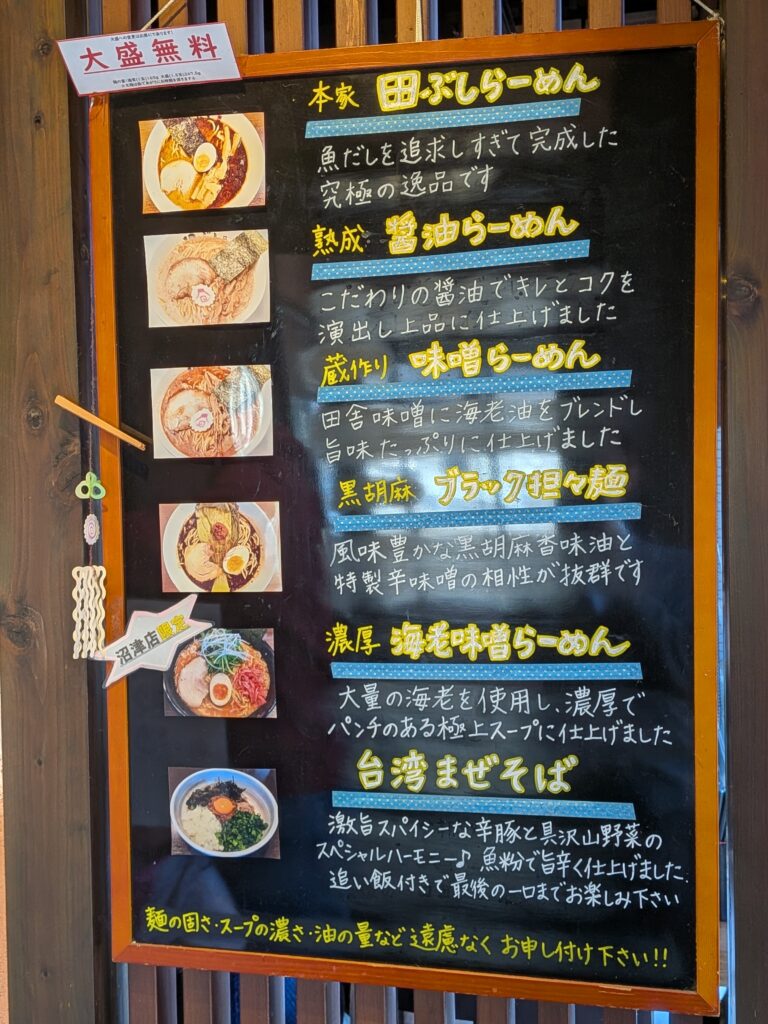 大盛無料
本家 田ぶしらーめん
魚だしを追求しすぎて完成した
究極の逸品です
熟成 醤油らーめん
こだわりの醤油でキレとコクを
演出し上品に仕上げました
蔵作り 味噌らーめん
田舎味噌に海老油をブレンドし
旨味たっぷりに仕上げました
黒胡麻 ブラック担々麺
風味豊かな黒胡麻香味油と
特製辛味噌の相性が抜群です
沼津店限定
濃厚 海老味噌らーめん
大量の海老を使用し、濃厚で
パンチのある極上スープに仕上げました
台湾まぜそば
激旨スパイシーな辛豚と具沢山野菜の
スペシャルハーモニー♪ 魚粉で旨辛く仕上げました.
追い飯付きで最後の一口までお楽しみ下さい
麺の固さ・スープの濃さ・油の量など遠慮なくお申し付け下さい!!